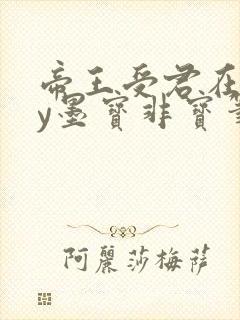 帝王受君在
y墨寶非寶
阿麗莎梅薩